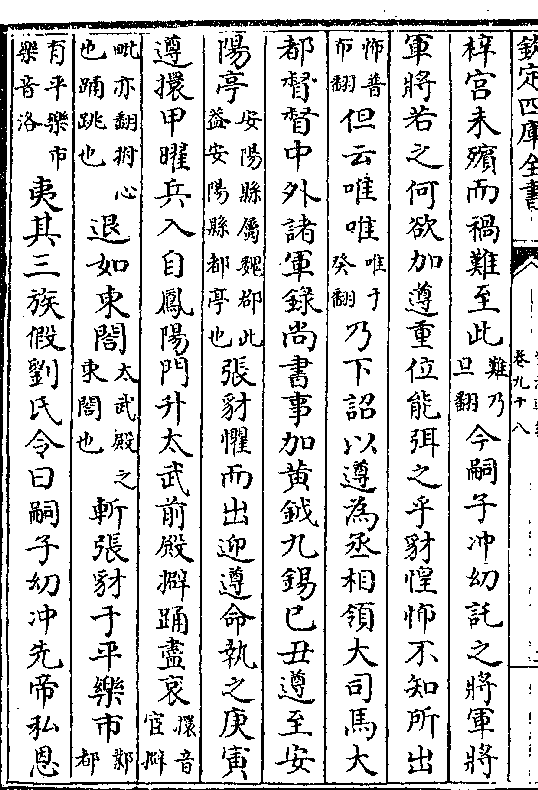 欽定四庫全書
卷九十八
梓宮未殯而禍難至此難乃旦翻今嗣子冲幼託之將軍將
軍將若之何欲加遵重位能弭之乎豺惶怖不知所出
怖普布翻但云唯唯唯于癸翻乃下詔以遵為丞相領大司馬大
都督督中外諸軍錄尚書事加黃鉞九錫己丑遵至安
陽亭安陽縣屬魏郡此蓋安陽縣都亭也張豺懼而出迎遵命執之庚寅
遵擐甲曜兵入自鳳陽門升太武前殿擗踊盡哀擐音宦擗
毗亦翻拊心也踊跳也退如東閤太武殿之東閤也斬張豺于平樂市鄴都
有平樂市樂音洛夷其三族假劉氏令曰嗣子幼冲先帝私恩